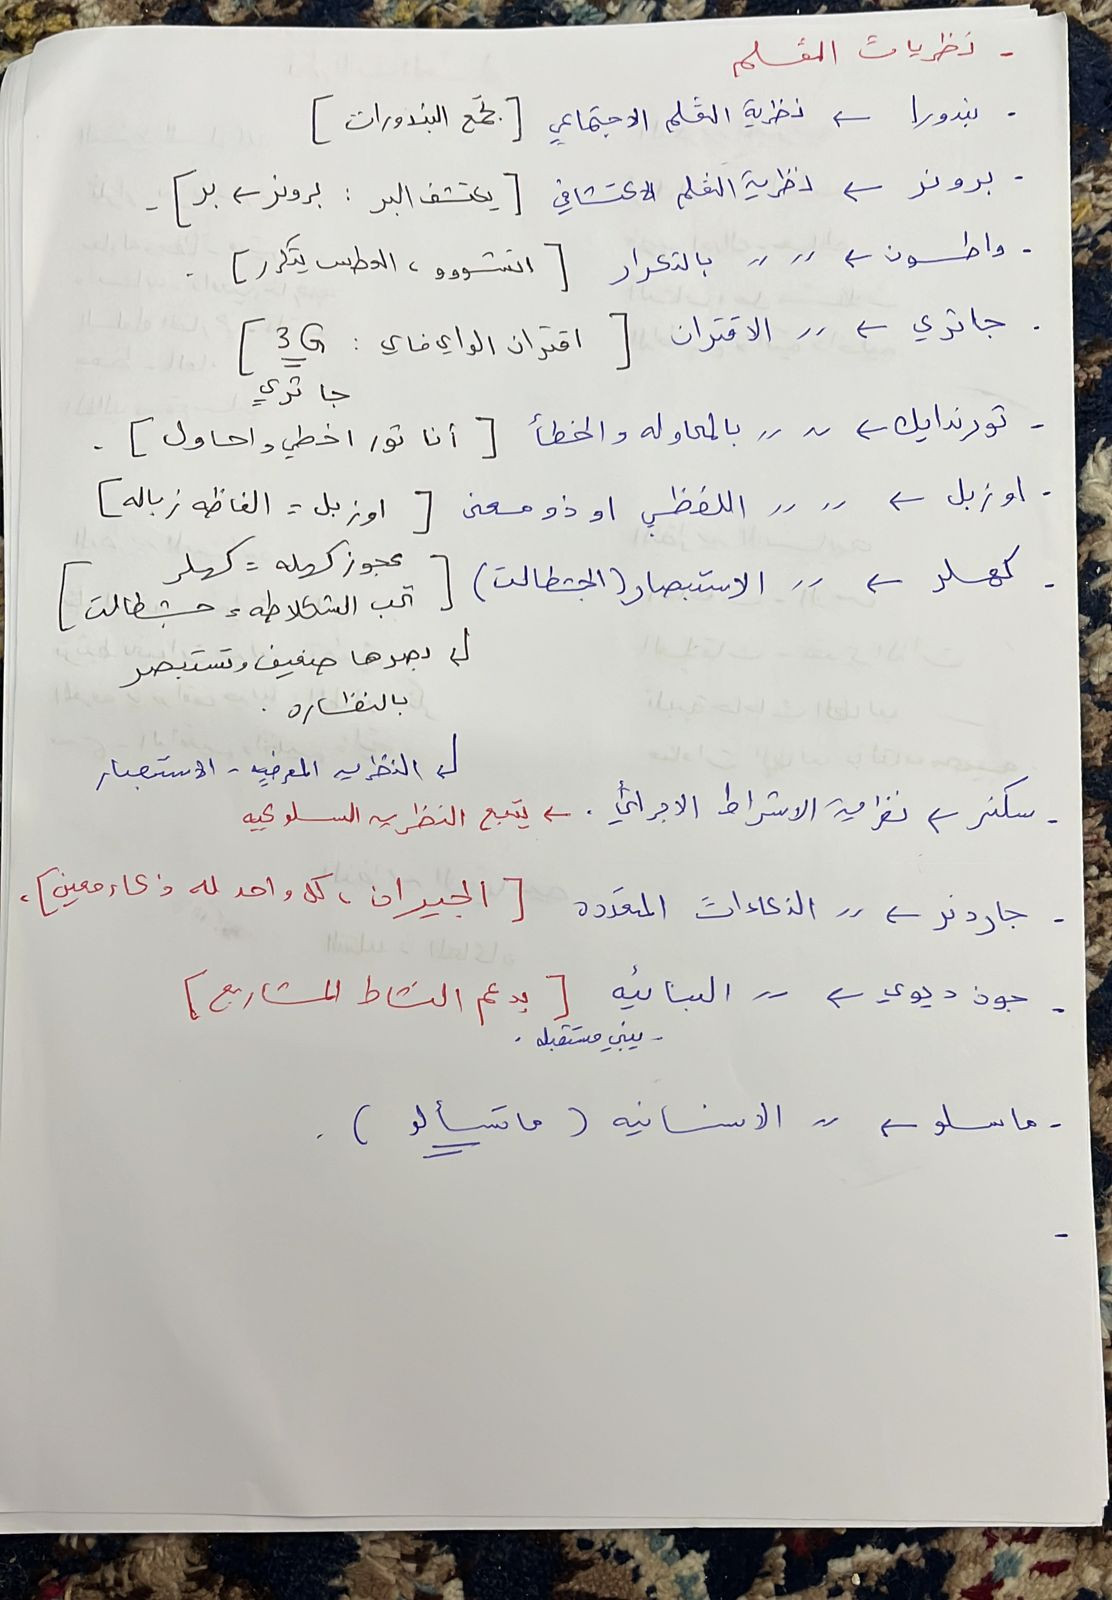 - نظريات التعلم
- بندورا ← نظرية التعلم الاجتماعي [تجمع البندورات]
- برونر ← نظرية التعلم الاكتشافي [يكتشف البر : برونر ← بر] -
- واطسون ← 〃 〃 بالتكرار [اتشووو ، العطس يتكرر] .
- جاثري ← 〃 الاقتران [اقتران الواي فاي : 3G]
جا ثري
- ثورندايك ← 〃 〃 بالمحاوله والخطأ [أنا ثور اخطي واحاول] .
- اوزبل ← 〃 〃 اللفظي او ذو معنى [اوزبل = الفاظه زباله]
- كهلر ← 〃 الاستبصار (الجشطالت) [عجوز كهله = كهلر
تحب الشكلاطه = جشطالت]
↲ بصرها ضعيف وتستبصر
بالنظاره .
↲ النظريه المعرفيه - الاستبصار
- سكنر ← نظرية الاشتراط الاجرائي . ← يتبع النظريه السلوكيه
- جاردنر ← 〃 الذكاءات المتعدده [الجيران ، كل واحد له ذكاء معين] .
- جون ديوي ← 〃 البنائيه [يدعم النشاط المشاريع]
- يبني مستقبله .
- ماسلو ← 〃 الانسانيه (ماتسألو) .
-